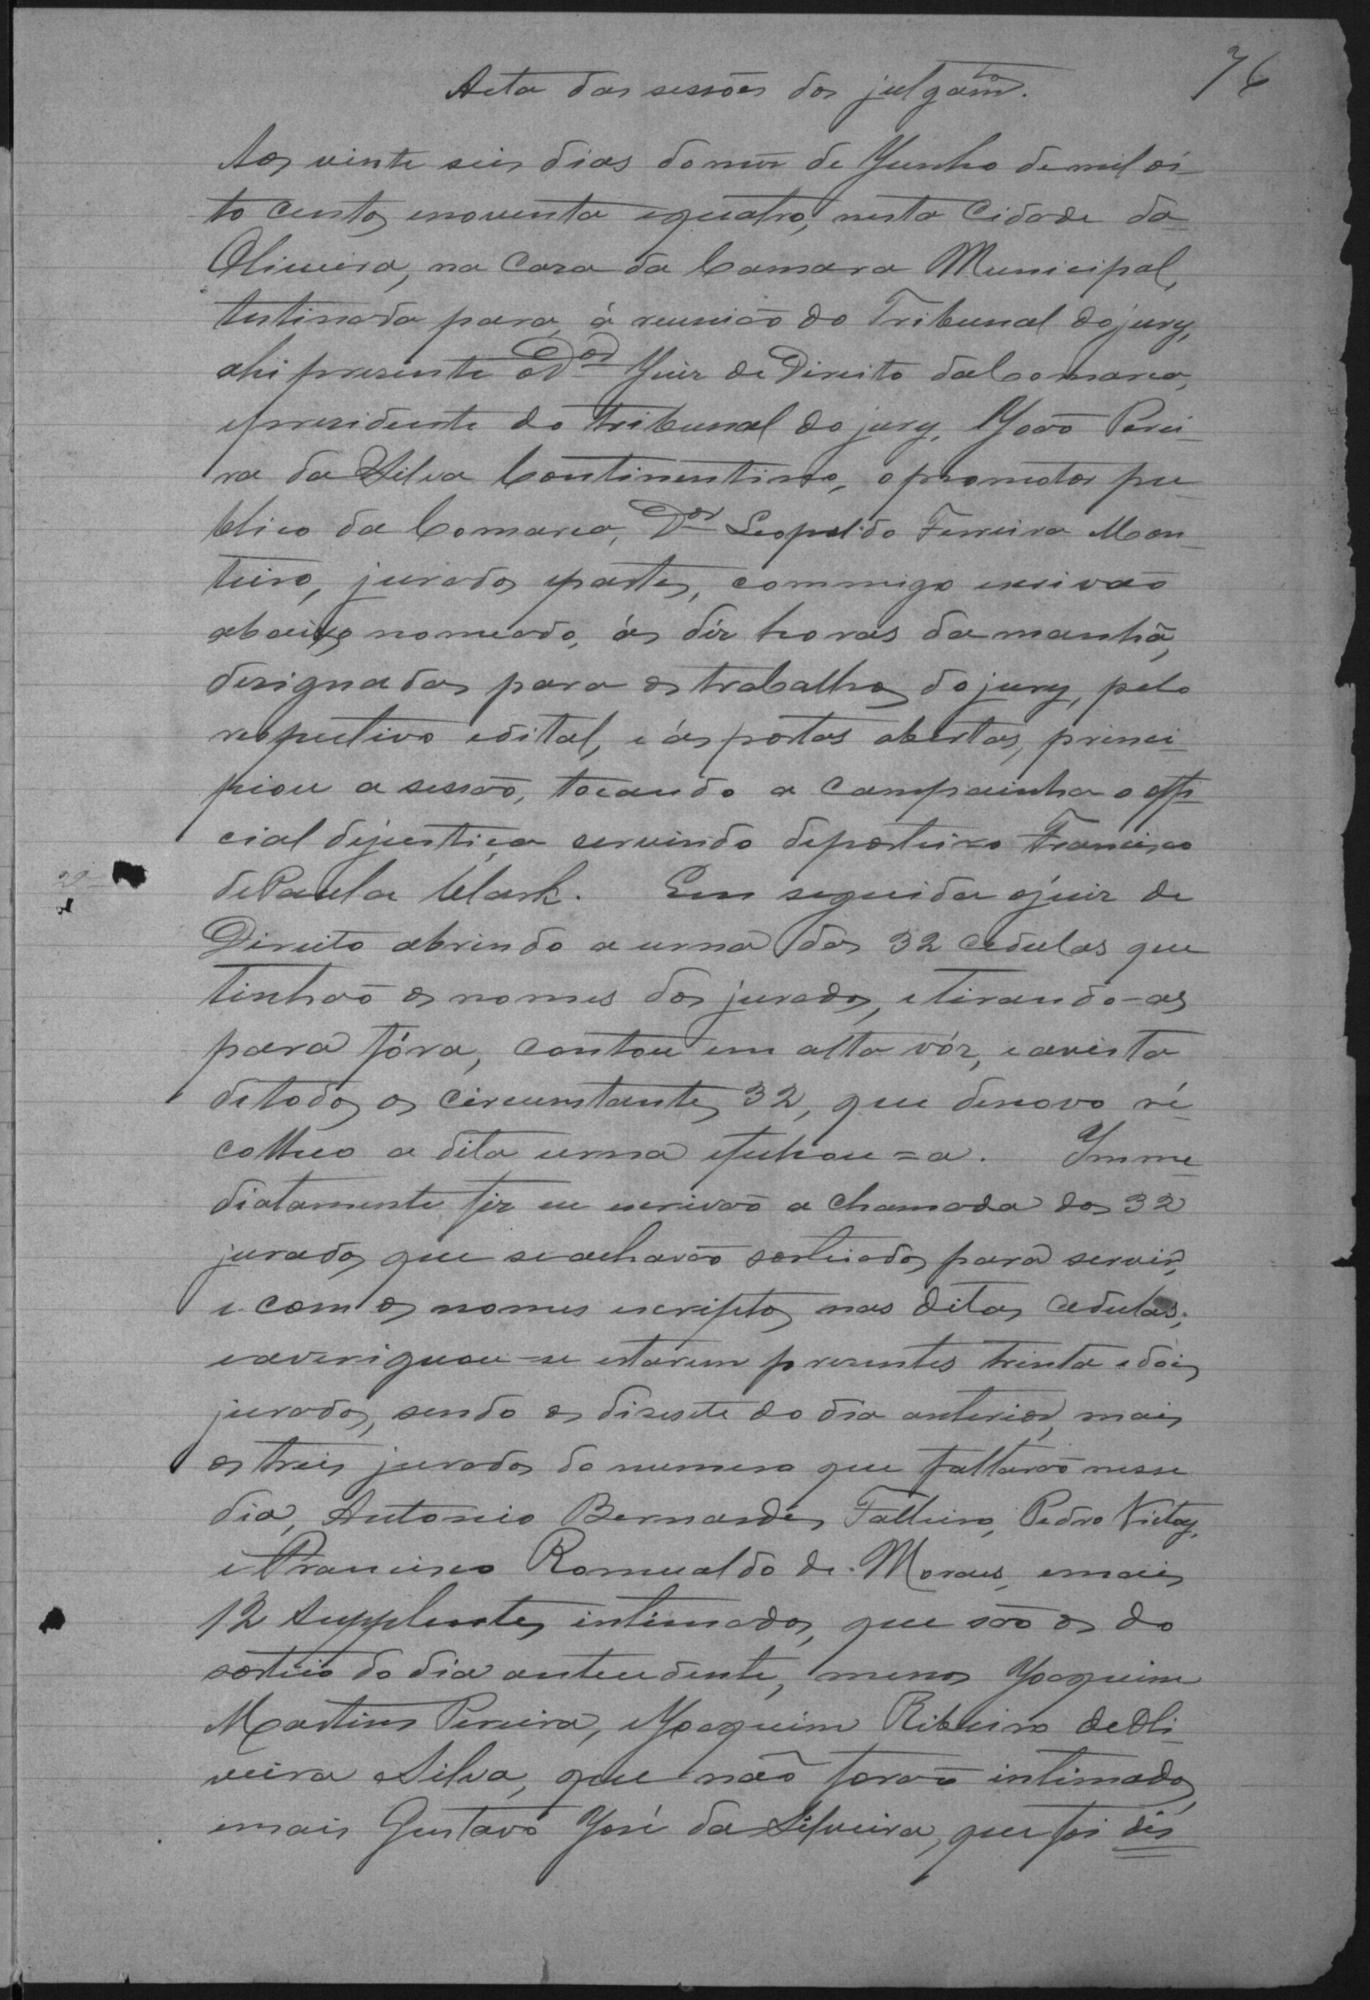 76
Acta das sessões dos julgam.tos
Aos vinte seis dias do mez de Junho de mil oi-
to centos enoventa equatro, nesta Cidade da
Oliveira, na Caza da Camara Municipal,
testinada para, á reunião do Tribunal do jury,
ahi presente o Dor Juiz de Direito da Comarca,
epresidente do tribunal do jury, João Perei-
ra da Silva Continentino, opromotor pu-
blico da Comarca, Dor Leopoldo Ferreira Mon-
teiro, jurados epartes, commigo escrivão
abaixo nomeado, ás déz horas da manhã,
designadas para os trabalhos do jury, pelo
respectivo edital, e ás portas abertas, princi-
piou a sessão, tocando a campainha o offi-
cial dejustiça servindo deporteiro Francisco
dePaula Clark. Em seguida ojuiz de
Direito abrindo a urna das 32 cedulas que
tinhão os nomes dos jurados, etirando-as
para fóra, contou em alta vóz, eavista
detodos os circunstantes 32, que denovo re-
colheo a dita urna efechou=a. Imme-
diatamente fiz eu escrivão a chamada dos 32
jurados que seachavão sorteados para servir,
e com os nomes escriptos nas ditas cedulas;
eaveriguou-se estarem presentes trinta edois
jurados, sendo os disesete do dia anterior, mais
os treis jurados do numero que faltarão nesse
dia, Antonio Bernardes Falleiro, Pedro Victoy,
e Francisco Romualdo de Moraes, emais
12 supplentes intimados, que são os do
sorteio do dia antecedente, menos Joaquim
Martins Pereira, eJoaquim Ribeiro deOli-
veira Silva, que não forão intimados,
emais Gustavo José da Silveira, que foi dis